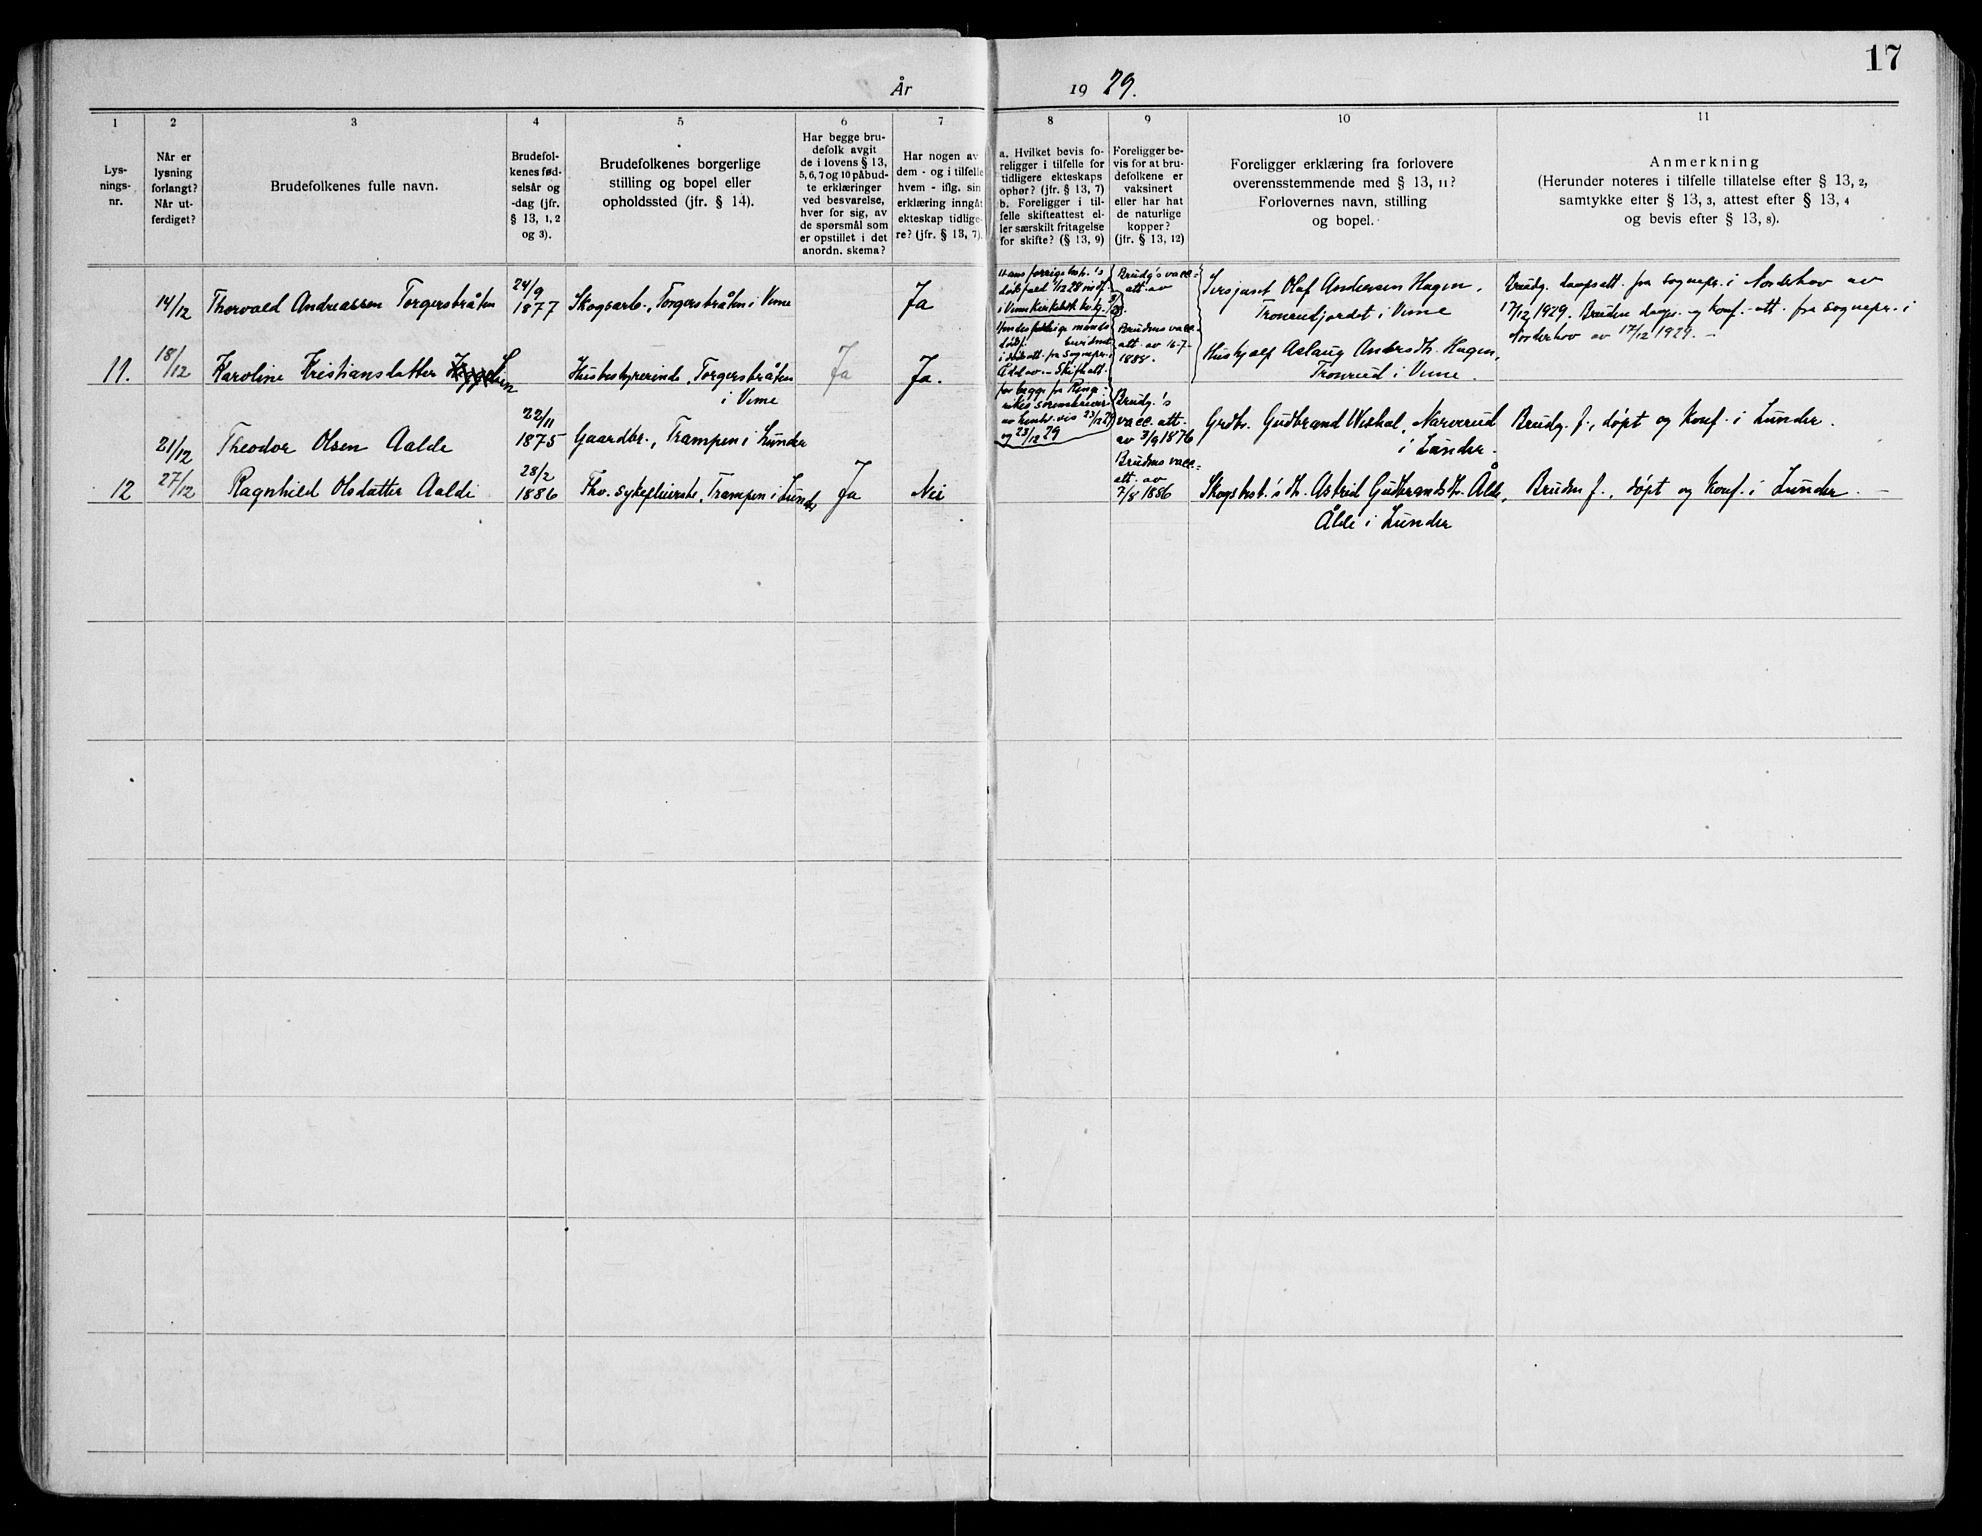 17
År 1929.
1 2 3 4 5 6 7 8 9 10 11
Lys-
nings-
nr.
Når er
lysning
forlangt?
Når ut-
ferdiget?
Brudefolkenes fulle navn.
Brudefol-
kenes fød-
selsår og
-dag (jfr.
§ 13, 1, 2
og 3).
Brudefolkenes borgerlige
stilling og bopel eller
opholdssted (jfr. § 14).
Har begge bru-
defolk avgit
de i lovens § 13,
5, 6, 7 og 10 påbud-
te erklæringer
ved besvarelse,
hver for sig, av
de spørsmål som
er opstillet i det
anordn. skema?
Har nogen av
dem - og i tilfelle
hvem - iflg. sin
erklæring inngåt
ekteskap tidlige-
re? (jfr. § 13, 7).
a. Hvilket bevis fo-
religger i tilfelle for
tidligere ekteskaps
ophør? (jfr. § 13, 7)
b. Foreligger i til-
felle skifteattest el-
ler særskilt fritagelse
for skifte? (§ 13, 9)
Foreligger be-
vis for at bru-
defolkene er
vaksinert
eller har hat
de naturlige
kopper?
(jfr. § 13, 12)
Foreligger erklæring fra forlovere
overensstemmende med § 13, 11?
Forlovernes navn, stilling
og bopel.
Anmerkning
(Herunder noteres i tilfelle tillatelse efter § 13, 2,
samtykke efter § 13, 3, attest efter § 13, 4
og bevis efter § 13, 8).
14/12 Thorvald Andreassen Torgersbråten
24/9
1877
Skogsarb., Torgersbråten i Veme
Ja
Hans forrige hustr.'s
i Veme Kirkebok
Brudg's vacc.-
att. av
Sersjant Olaf Andersen Hagen,
Tronrudjordet i Veme
Brudg. daapsatt. fra sognepr. i Norderhov av
17/12 1929. Bruden daaps- og konf.-att. fra sognepr. i
Norderhov av 17/12 1929. –
11. 18/12 Karoline Kristiansdatter Lien
Husbestyrerinde, Torgersbråten
i Veme
Ja
Ja.
Hendes forrige mands
dødsf. bevidnet
i dødsatt. fra sognepr. i
Ådal av – Skifteatt.
for begge fra Ringe-
rikes sorenskriveri
og 23/12 29
Brudens vacc.
att. av 16-7-
1888.
Hushjelp Aslaug Andersdtr. Hagen,
Tronrud i Veme.
21/12 Theodor Olsen Aalde
22/11
1875
Gaardbr., Trampen i Lunder
Brudg.'s
vacc. att.
av 3/9 1876
Grdbr. Gudbrand Viskal, Narverud
i Lunder.
Brudg. f., døpt og konf. i Lunder.
12 27/12 Ragnhild Olsdatter Aalde
28/2
1886
Fhv. sykepleierske, Trampen i Lunder
Ja
Nei
Brudens vacc.-
att. av
7/8 1886
Skogsbest.'s dtr. Astrid Gudbrandsdtr. Ålde,
Ålde i Lunder
Bruden f., døpt og konf. i Lunder. –